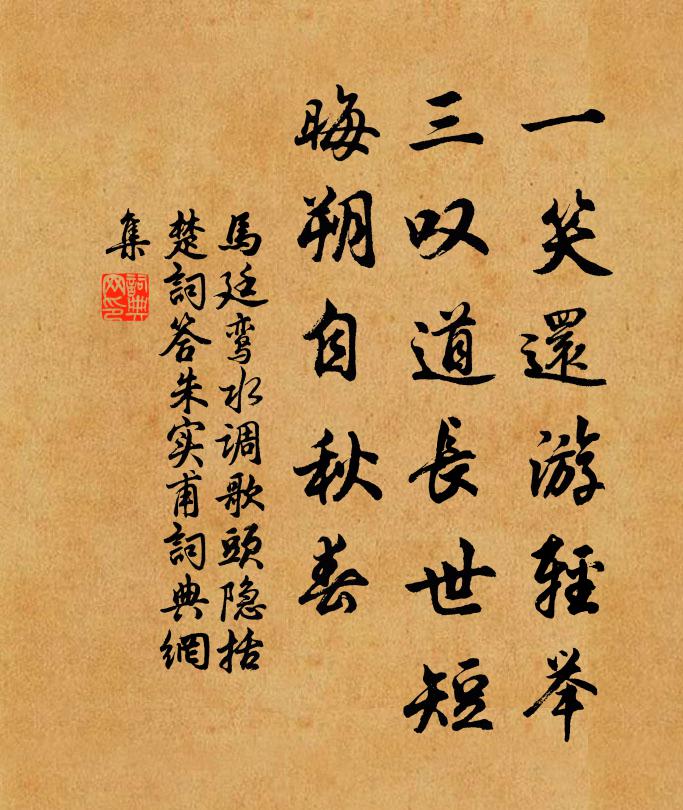 一笑還游輕举
三叹道長世短
晦朔自秋春
馬廷鸾水调歌頭隐括
楚詞答朱实甫詞典網
集
詞典
网印